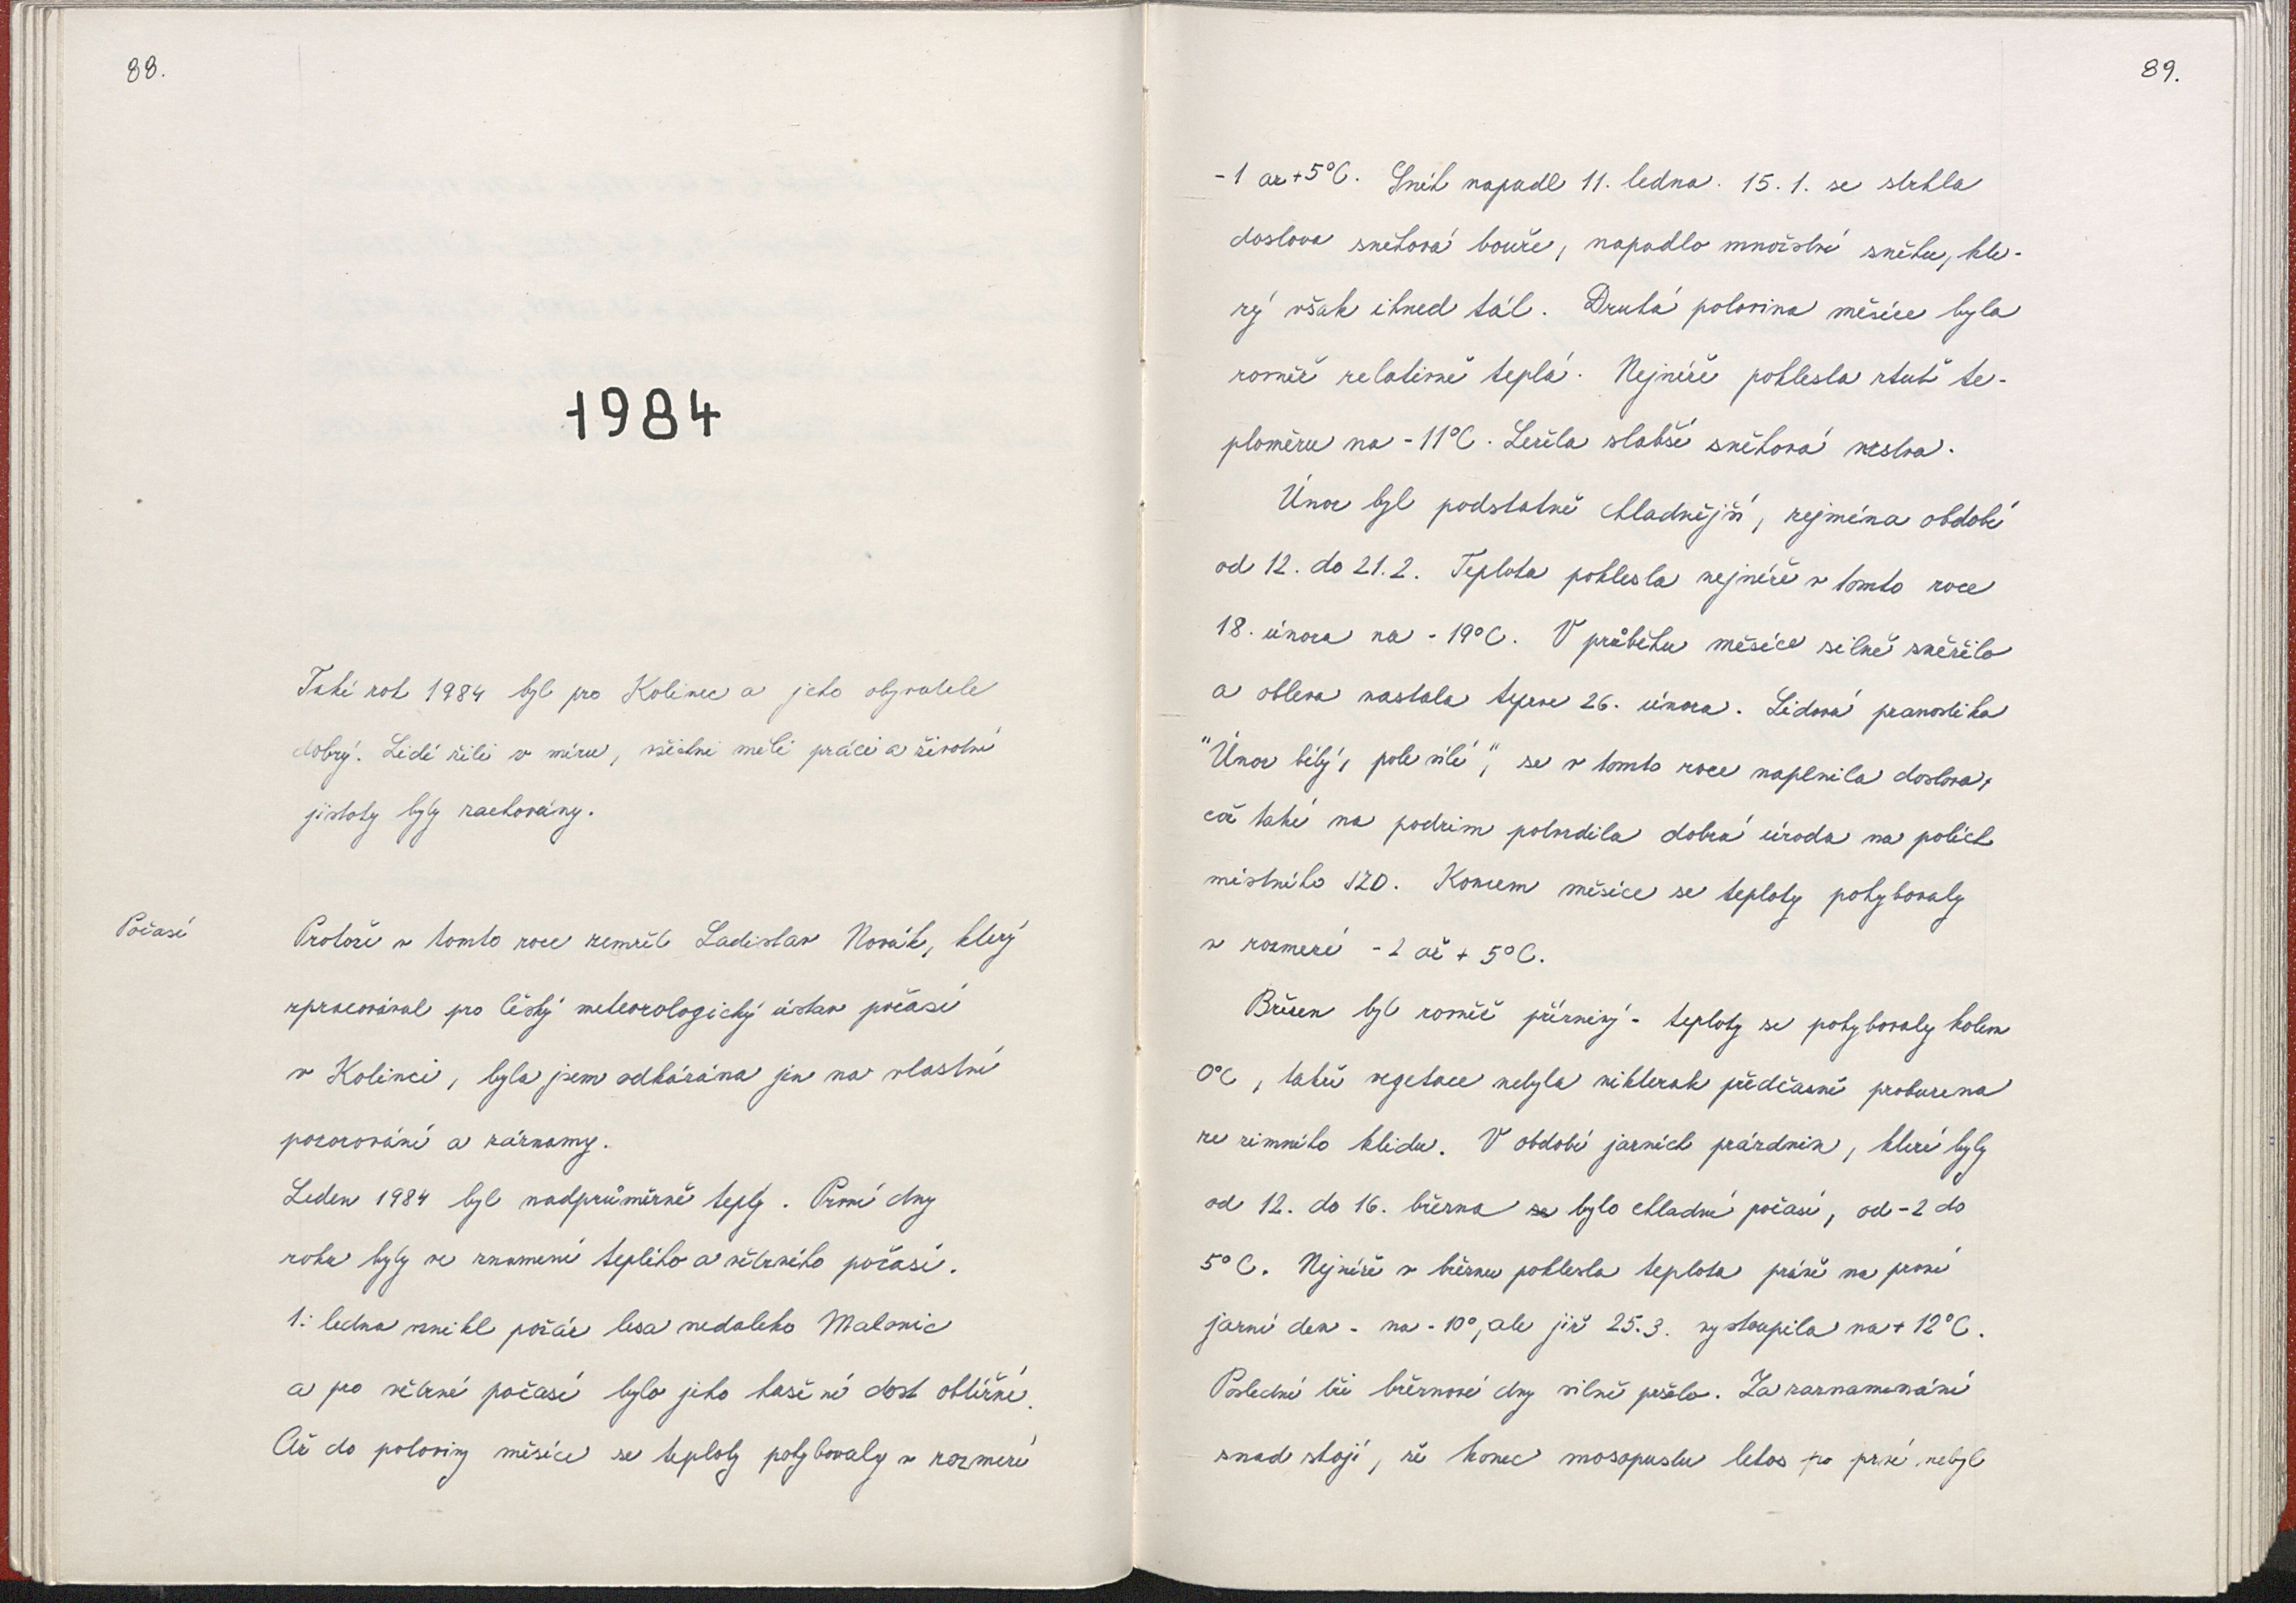 88.
1984
Také rok 1984 byl pro Kolinec a jeho obyvatele
dobrý. Lidé žili v míru, všichni měli práci a životní
jistoty byly zachovány.
Počasí
Protože v tomto roce zemřel Ladislav Novák, který
zpracovával pro Český meteorologický ústav počasí
v Kolinci, byla jsem odkázána jen na vlastní
pozorování a záznamy.
Leden 1984 byl nadprůměrně teplý. První dny
roku byly ve znamení teplého a větrného počasí.
1. ledna vznikl požár lesa nedaleko Malonic
a pro větrné počasí bylo jeho hašení dost obtížné.
Až do poloviny měsíce se teploty pohybovaly v rozmezí
89.
-1 až +5°C. Sníh napadl 11. ledna. 15. 1. se strhla
doslova sněhová bouře, napadlo množství sněhu, kte-
rý však ihned tál. Druhá polovina měsíce byla
rovněž relativně teplá. Nejníže poklesla rtuť te-
ploměru na -11°C. Ležela slabší sněhová vrstva.
Únor byl podstatně chladnější, zejména období
od 12. do 21. 2. Teplota poklesla nejníže v tomto roce
18. února na -19°C. V průběhu měsíce silně sněžilo
a obleva nastala teprve 26. února. Lidová pranostika
"Únor bílý, pole sílí", se v tomto roce naplnila doslova,
což také na podzim potvrdila dobrá úroda na polích
místního JZD. Koncem měsíce se teploty pohybovaly
v rozmezí -2 až + 5°C.
Březen byl rovněž příznivý - teploty se pohybovaly kolem
0°C, takže vegetace nebyla nikterak předčasně probuzena
ze zimního klidu. V období jarních prázdnin, které byly
od 12. do 16. března se bylo chladné počasí, od -2 do
5°C. Nejníže v březnu poklesla teplota právě na první
jarní den - na -10°, ale již 25. 3. vystoupila na +12°C.
Poslední tři březnové dny silně pršelo. Za zaznamenání
snad stojí, že konec masopustu letos po prvé nebyl